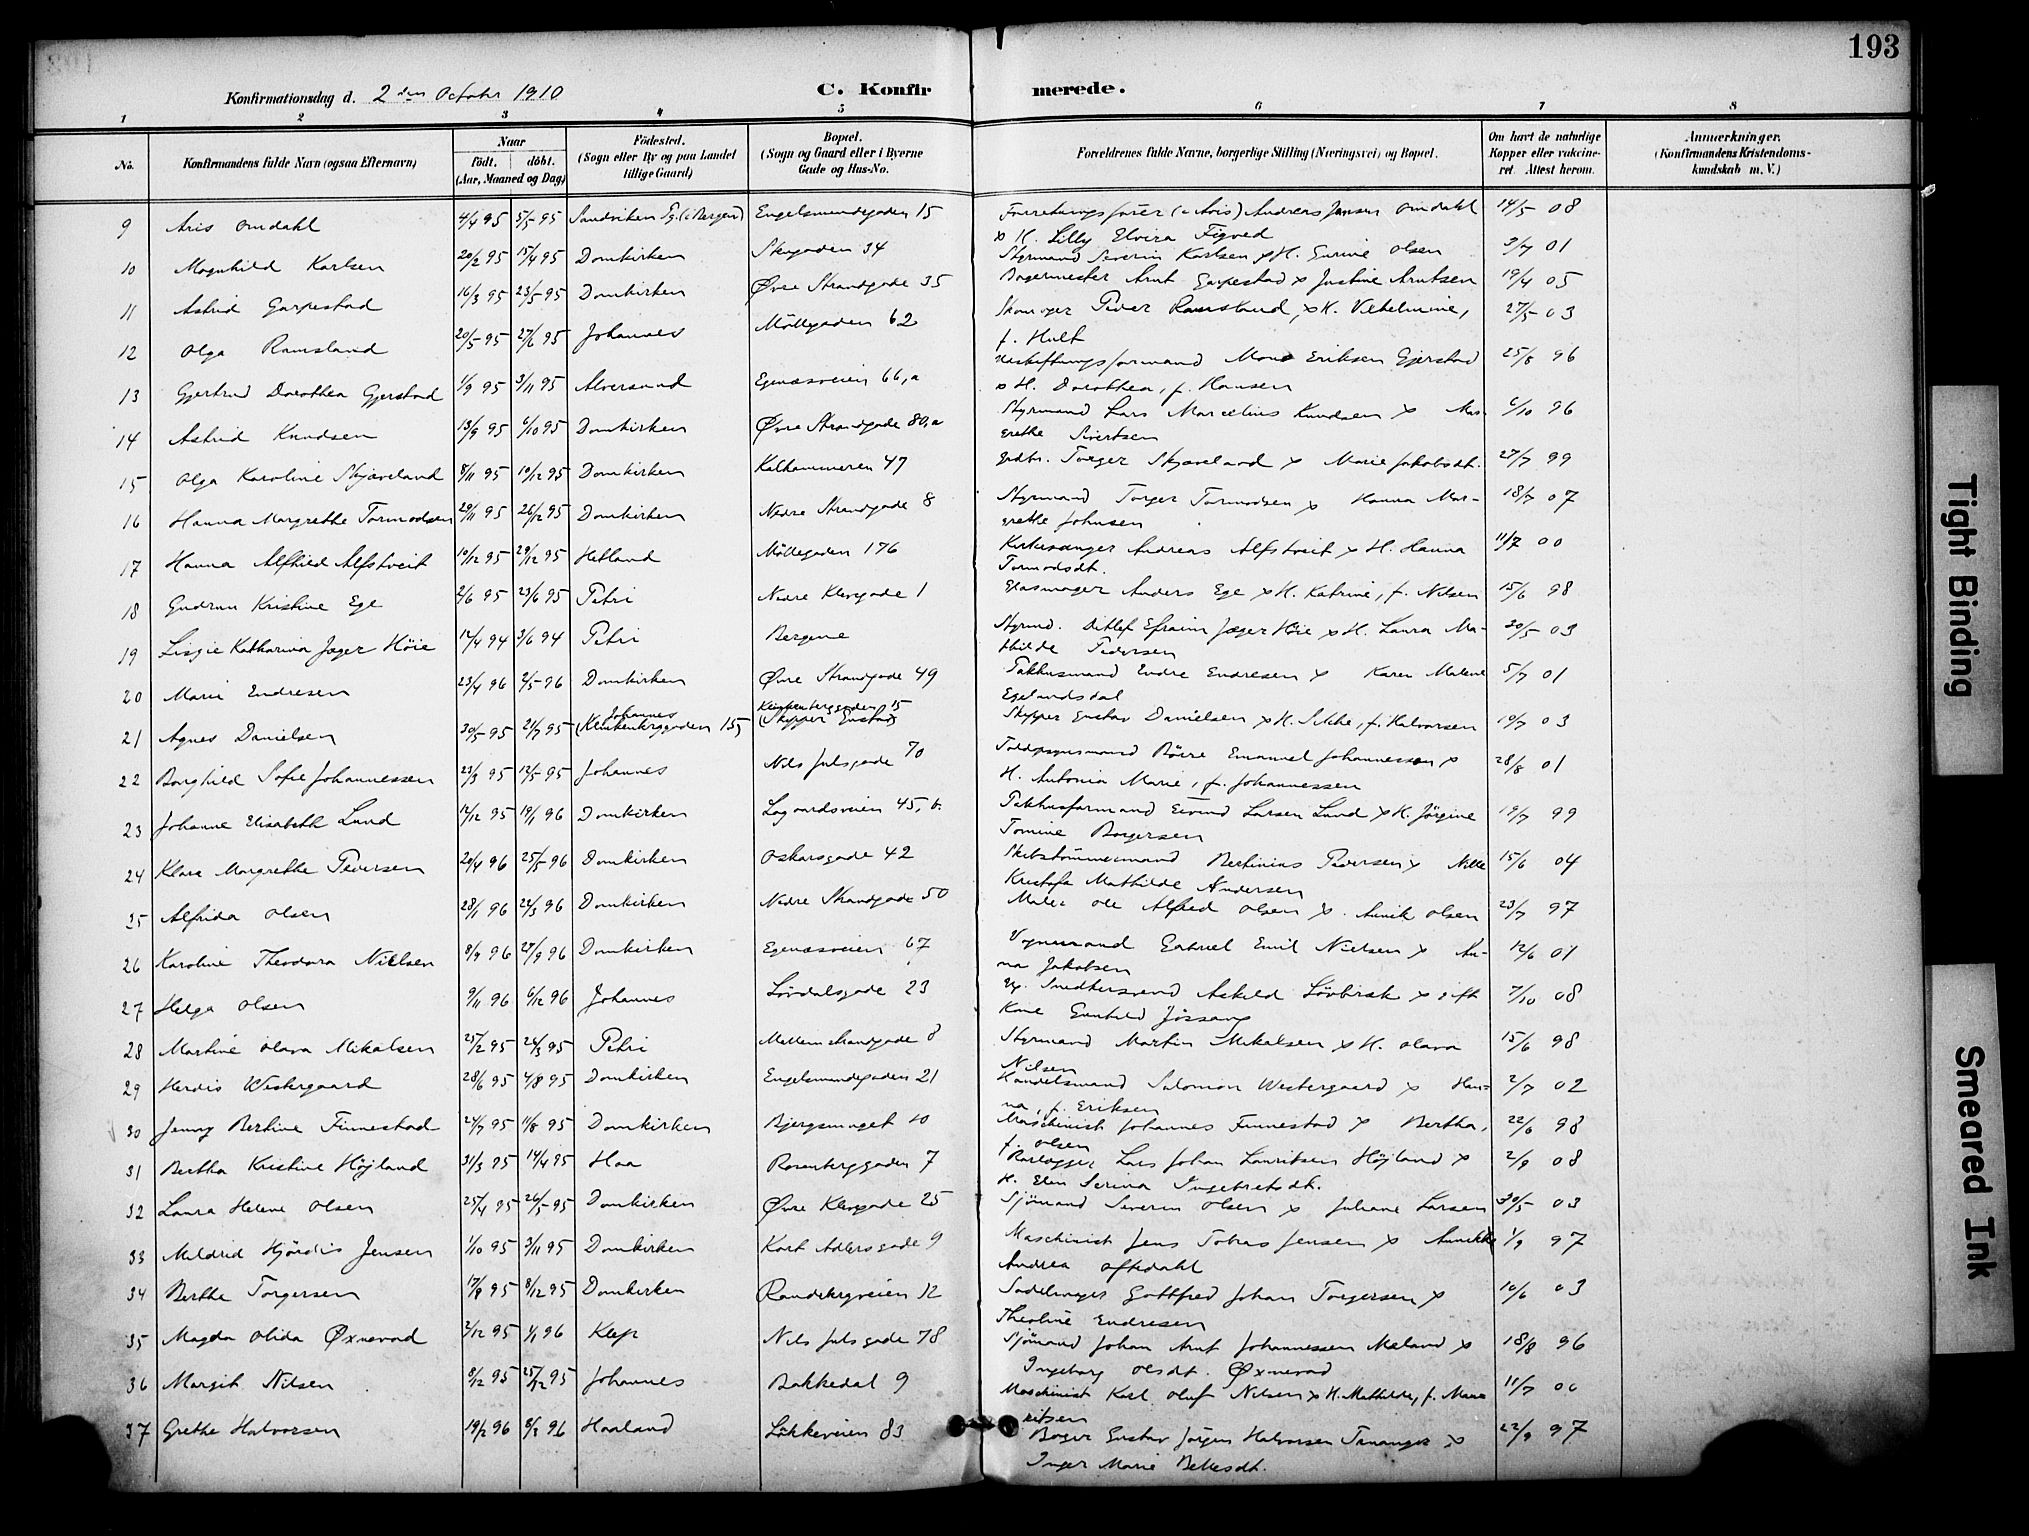 193
Konfirmationsdag d. 2den October 1910
C. Konfirmerede.
1 2 3 4 5 6 7 8
No. Konfirmandens fulde Navn (ogsaa Efternavn) Naar födt. döbt. (Aar, Maaned og Dag) Födested. (Sogn eller By og paa Landet tillige Gaard) Bopæl. (Sogn og Gaard eller i Byerne Gade og Hus-No. Forældrenes fulde Navne, borgerlige Stilling (Næringsvei) og Bopæl. Om havt de naturlige Kopper eller vakcineret. Attest herom. Anmærkninger. (Konfirmandens Kristendomskundskab m. V.)
9 Aris Omdahl 4/4 95 5/5 95 Sandviken Sg. (i Bergen) Engelsmindegaden 15 Forretningsfører (Avis) Andreas Jensen Omdahl 14/5 08
x H. Lilly Elvira Figved
10 Magnhild Karlsen 20/2 95 15/4 95 Domkirken Skagaden 34 Styrmand Severin Karlsen x H. Gurine Olsen 3/7 01
11 Astrid Garpestad 16/3 95 23/5 95 Domkirken Øvre Strandgade 35 Bagermester Arnt Garpestad x Justine Arntsen 19/4 05
12 Olga Ramsland 20/5 95 27/6 95 Johannes Möllegaden 62 Skomager Peder Ramsland, x H. Vilhelmine, 27/5 03
f. Hult
13 Gjertrud Dorothea Gjerstad 1/9 95 3/11 95 Alversund Egenæsveien 66,a Eriksen Gjerstad 25/8 96
x H. Dorothea, f. Hansen
14 Astrid Knudsen 13/9 95 6/10 95 Domkirken Øvre Strandgade 80,a Styrmand Lars Marcelius Knudsen x Mar- 6/10 96
grethe Sivertsen
15 Olga Karoline Skjæveland 8/11 95 10/12 95 Domkirken Kalhammeren 47 Gdbr. Torger Skjæveland x Marie Jakobsdt. 27/7 99
16 Hanna Margrethe Tormodsen 29/11 95 26/12 95 Domkirken Nedre Strandgade 8 Styrmand Torger Tormodsen x Hanna Mar- 18/7 07
grethe Johnsen
17 Hanna Alfhild Alfstveit 10/12 95 29/12 95 Hetland Möllegaden 176 Kirkesanger Andreas Alfstveit x H. Hanna 11/7 00
Tormodsdt.
18 Gudrun Kristine Ege 2/6 95 23/6 95 Petri Nedre Klevegade 1 Glasmager Anders Ege x H. Katrine, f. Nilsen 15/6 98
19 Katharina Jæger Höie 12/4 94 3/6 94 Petri Bergene Styrmd. Ditlef Efraim Jæger Höie x H. Laura Ma- 20/5 03
thilde Pedersen
20 Marie Endresen 23/4 96 2/5 96 Domkirken Øvre Strandgade 49 Pakhusmand Endre Endresen x Karen Malene 5/7 01
Egelandsdal
21 Agnes Danielsen 30/5 95 21/7 95 Johannes (Klinkenberggaden 15) Klinkenberggaden 15 (Skipper Gustav) Skipper Gustav Danielsen x H. Sikke, f. Halvorsen 19/7 03
22 Borghild Sofie Johannessen 23/3 95 12/5 95 Johannes Nils Julsgade 70 Toldopsynsmand Börre Emanuel Johannessen x 28/8 01
H. Antonia Marie, f. Johannessen
23 Johanne Elisabeth Lund 14/12 95 19/1 96 Domkirken Lagaardsveien 45,b. Pakhusformand Eivind Larsen Lund x H. Jörgine 19/7 99
Tomine Borgersen
24 Klara Margrethe Pedersen 20/4 96 25/5 96 Domkirken Oskarsgade 42 Skibstömmermand Bertinius Pedersen x Nille 15/6 04
Mathilde Andersen
25 Alfrida Olsen 28/1 96 22/3 96 Domkirken Nedre Strandgade 50 Maler Ole Alfred Olsen x Annik Olsen 23/7 97
26 Karoline Theodora Nielsen 8/9 96 27/9 96 Domkirken Egenæsveien 67 Vognmand Gabriel Emil Nielsen x An- 12/6 01
na Jakobsen
27 Helga Olsen 9/11 96 6/12 96 Johannes Lövdalsgade 23 Ug. Snedkersvend Askild Lövbræk x gift 7/10 08
Kone Gunhild Jössang
28 Martine Olava Mikalsen 25/2 95 24/3 95 Petri Mellemstrandgade 8 Styrmand Martin Mikalsen x H. Olava 15/6 98
Nilsen
29 Herdis Westergaard 28/6 95 4/8 95 Domkirken Engelsmindegaden 21 Handelsmand Salomon Westergaard x Han- 2/7 02
na, f. Eriksen
30 Jenny Bertine Finnestad 24/7 95 11/8 95 Domkirken Bjergsmuget 10 Maschinist Johannes Finnestad x Bertha, 22/6 98
f. Olsen
31 Bertha Kristine Höjland 31/3 95 14/4 95 Haa Rosenberggaden 7 Rørlægger Lars Johan Lauritsen Höjland x 2/9 08
H. Elen Serina Ingebretsdt.
32 Laura Helene Olsen 25/4 95 26/5 95 Domkirken Øvre Klevegade 25 Sjömand Severin Olsen x Juliane Larsen 30/5 03
33 Mildrid Hjördis Jensen 1/10 95 3/11 95 Domkirken Kort Adlersgade 9 Maschinist Jens Tobias Jensen x Annikke 1/9 97
Andrea Oftedahl
34 Berthe Torgersen 17/9 95 8/12 95 Domkirken Randebergveien 12 Sadelmager Gottfred Johan Torgersen x 10/6 03
Theoline Endresen
35 Magda Olida Øxnevad 2/12 95 1/1 96 Klep Nils Julsgade 78 Sjömand Johan Arnt Johannessen Meland x 18/8 96
Ingeborg Olsdt. Øxnevad
36 Margit Nilsen 8/12 95 25/12 95 Johannes Bakkedal 9 Maschinist Karl Oluf Nilsen x H. Mathilde, f. Mau- 11/7 00
ritsen
37 Grethe Halvorsen 19/2 96 8/3 96 Haaland Lökkeveien 83 Bager Gustav Jörgen Halvorsen Tananger x 22/9 97
Inger Marie Bellesdt.
Tight Binding
Smeared Ink